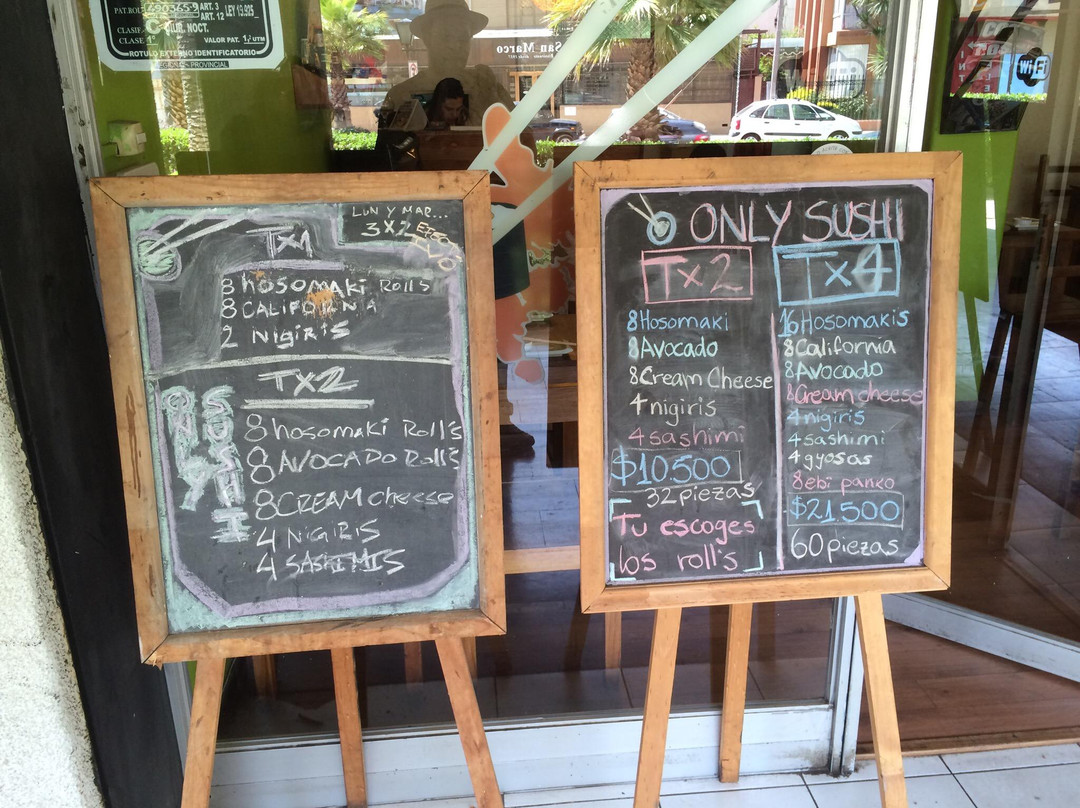 490365-9
ART. 3
ART. 12
LEY 19.925
CLASIF.
CLASE
NOCT.
VALOR PAT. 1,2 UTM
ROTULO EXTERNO IDENTIFICATORIO
PROVINCIAL
San Marco
WiFi
LUN Y MAR...
3X2 EFECTIVO
TX1
8 hosomaki Rolls
8 CALIFORNIA
2 Nigiris
TX2
ONLY
SUSHI
8 hosomaki Roll's
8 AVOCADO Roll's
8 CREAM cheese
4 NIGIRIS
4 SASHIMIS
ONLY SUSHI
Tx2
8 Hosomaki
8 Avocado
8 Cream Cheese
4 nigiris
4 sashimi
$10.500
32 piezas
Tu escoges
los roll's
Tx4
16 Hosomakis
8 California
8 Avocado
8 Cream cheese
4 nigiris
4 sashimi
4 gyosas
8 ebi panko
$21.500
60 piezas